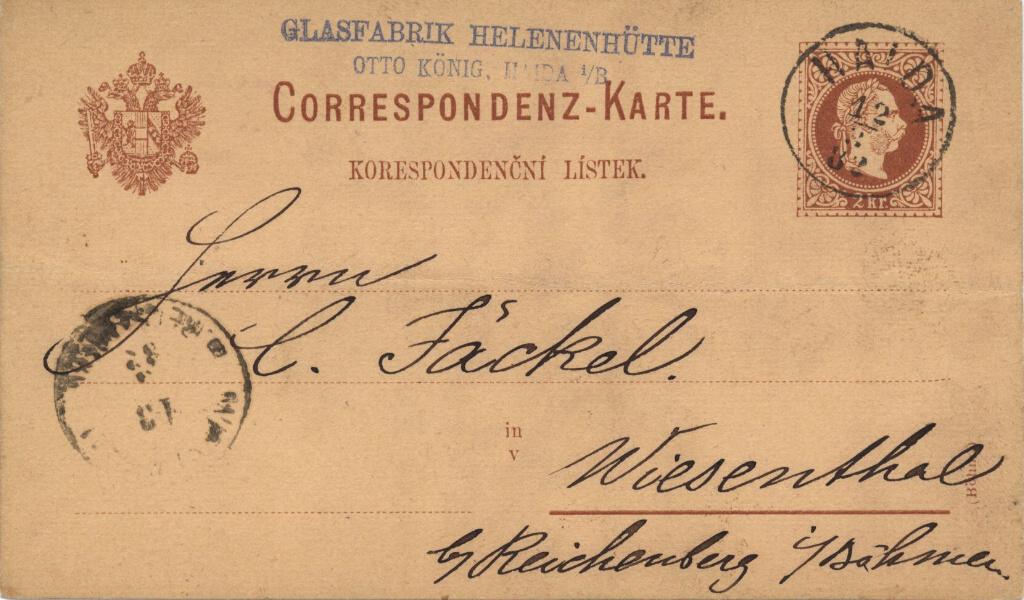 GLASFABRIK HELENENHÜTTE
OTTO KÖNIG, HAIDA i/B
CORRESPONDENZ-KARTE.
KORESPONDENČNÍ LÍSTEK.
HAIDA
12
2 kr.
Herrn
C. Fäckel.
in
v
Wiesenthal
b/Reichenberg i/Böhmen.
13
(Böhm